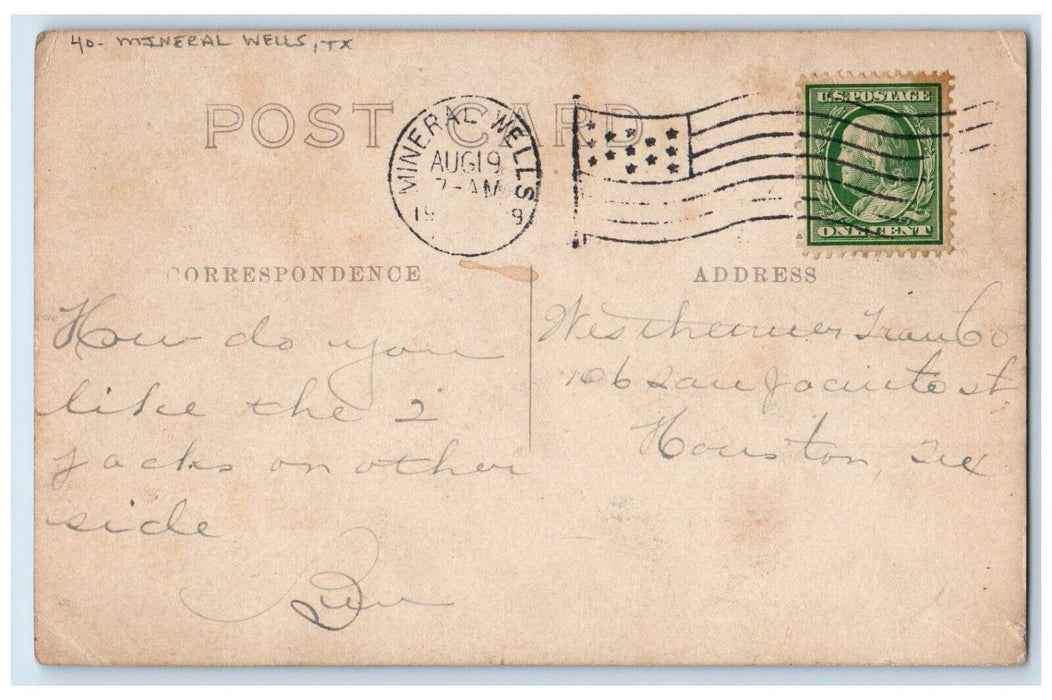 40- MINERAL WELLS, TX
POST CARD
MINERAL WELLS
AUG 19
7-AM
19 9
U.S. POSTAGE
ONE CENT
CORRESPONDENCE
ADDRESS
How do you
like the 2
Jacks on other
side
Ben
Westheimer Tran Co
106 San Jacinto st
Houston, Tex